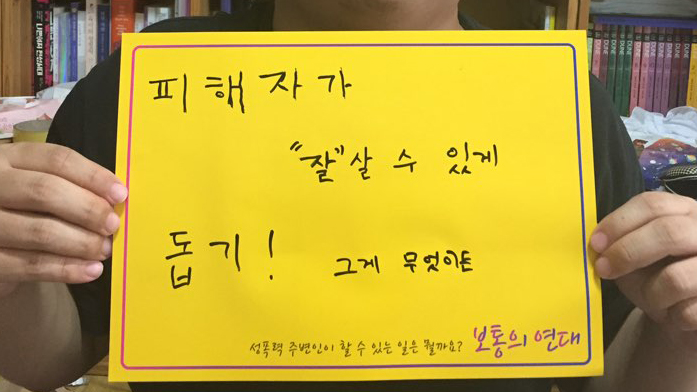 피해자가
"잘"살 수 있게
돕기! 그게 무엇이든
성폭력 주변인이 할 수 있는 일은 뭘까요? 보통의 연대
DUNE
DUNE
DUNE
DUNE